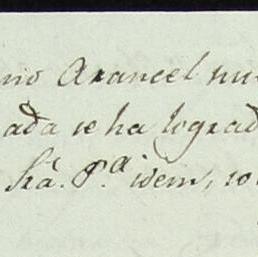 mo Arancel nu
ada se ha lograd
Srã. P.ª idem, so